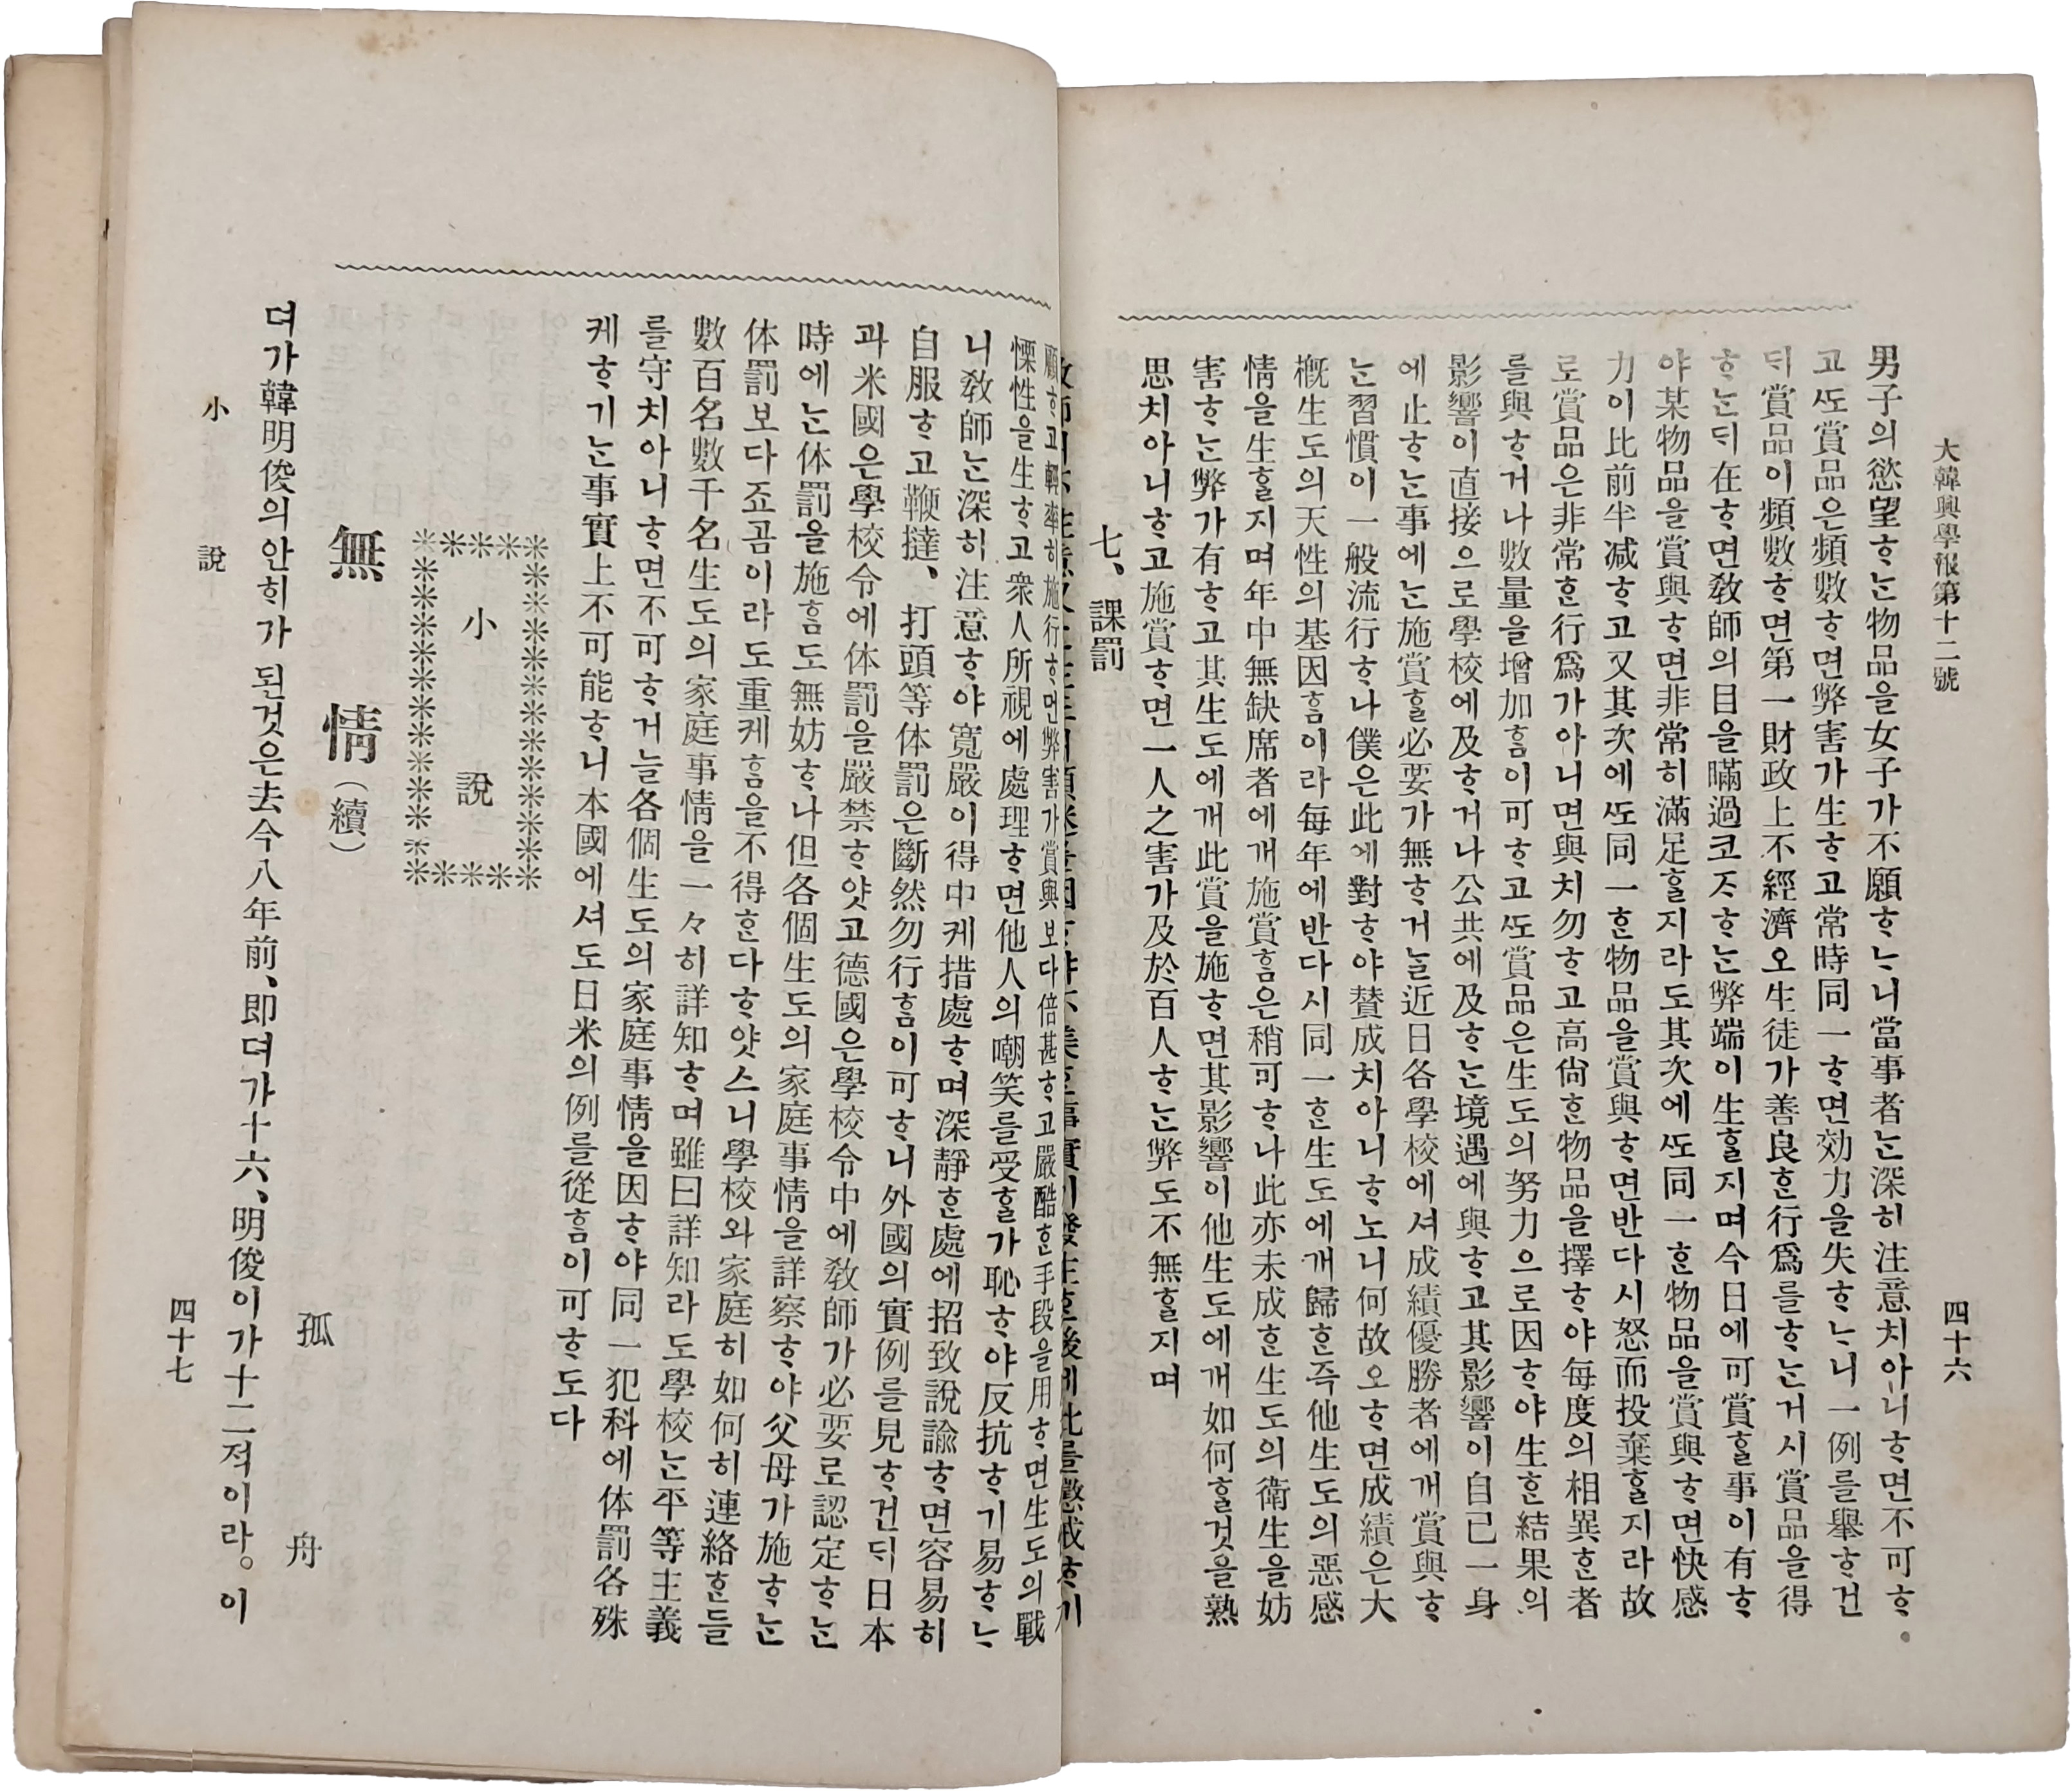 大韓興學報第十二號
四十六
男子의慾望ᄒᆞᄂᆞᆫ物品을女子가不願ᄒᆞᄂᆞ니當事者ᄂᆞᆫ深히注意치아니ᄒᆞ면不可ᄒᆞ
고ᄯᅩ賞品은頻數ᄒᆞ면弊害가生ᄒᆞ고常時同一ᄒᆞ면効力을失ᄒᆞᄂᆞ니一例를擧ᄒᆞ건
ᄃᆡ賞品이頻數ᄒᆞ면第一財政上不經濟오生徒가善良ᄒᆞᆫ行爲를ᄒᆞᄂᆞᆫ거시賞品을得
ᄒᆞᄂᆞᆫᄃᆡ在ᄒᆞ면敎師의目을瞞過코ᄌᆞᄒᆞᄂᆞᆫ弊端이生ᄒᆞᆯ지며今日에可賞ᄒᆞᆯ事이有ᄒᆞ
야某物品을賞與ᄒᆞ면非常히滿足ᄒᆞᆯ지라도其次에ᄯᅩ同一ᄒᆞᆫ物品을賞與ᄒᆞ면快感
力이比前半减ᄒᆞ고又其次에ᄯᅩ同一ᄒᆞᆫ物品을賞與ᄒᆞ면반다시怒而投棄ᄒᆞᆯ지라故
로賞品은非常ᄒᆞᆫ行爲가아니면與치勿ᄒᆞ고高尙ᄒᆞᆫ物品을擇ᄒᆞ야每度의相異ᄒᆞᆫ者
를與ᄒᆞ거나數量을增加ᄒᆞᆷ이可ᄒᆞ고ᄯᅩ賞品은生도의努力으로因ᄒᆞ야生ᄒᆞᆫ結果의
影響이直接으로學校에及ᄒᆞ거나公共에及ᄒᆞᄂᆞᆫ境遇에與ᄒᆞ고其影響이自己一身
에止ᄒᆞᄂᆞᆫ事에ᄂᆞᆫ施賞ᄒᆞᆯ必要가無ᄒᆞ거ᄂᆞᆯ近日各學校에셔成績優勝者에개賞與ᄒᆞ
ᄂᆞᆫ習慣이一般流行ᄒᆞ나僕은此에對ᄒᆞ야賛成치아니ᄒᆞ노니何故오ᄒᆞ면成績은大
槪生도의天性의基因ᄒᆞᆷ이라每年에반다시同一ᄒᆞᆫ生도에개歸ᄒᆞᆫ즉他生도의惡感
情을生ᄒᆞᆯ지며年中無缺席者에개施賞ᄒᆞᆷ은稍可ᄒᆞ나此亦未成ᄒᆞᆫ生도의衛生을妨
害ᄒᆞᄂᆞᆫ弊가有ᄒᆞ고其生도에개此賞을施ᄒᆞ면其影響이他生도에개如何ᄒᆞᆯ것을熟
思치아니ᄒᆞ고施賞ᄒᆞ면一人之害가及於百人ᄒᆞᄂᆞᆫ弊도不無ᄒᆞᆯ지며
七、課罰
顧ᄒᆞ고輕率히施行ᄒᆞ면弊害가賞與보다倍甚ᄒᆞ고嚴酷ᄒᆞᆫ手段을用ᄒᆞ면生도의戰
慄性을生ᄒᆞ고衆人所視에處理ᄒᆞ면他人의嘲笑를受ᄒᆞᆯ가恥ᄒᆞ야反抗ᄒᆞ기易ᄒᆞᄂᆞ
니敎師ᄂᆞᆫ深히注意ᄒᆞ야寬嚴이得中케措處ᄒᆞ며深靜ᄒᆞᆫ處에招致說諭ᄒᆞ면容易히
自服ᄒᆞ고鞭撻、打頭等体罰은斷然勿行ᄒᆞᆷ이可ᄒᆞ니外國의實例를見ᄒᆞ건ᄃᆡ日本
과米國은學校令에体罰을嚴禁ᄒᆞ얏고德國은學校令中에敎師가必要로認定ᄒᆞᄂᆞᆫ
時에ᄂᆞᆫ体罰을施ᄒᆞᆷ도無妨ᄒᆞ나但各個生도의家庭事情을詳察ᄒᆞ야父母가施ᄒᆞᄂᆞᆫ
体罰보다죠곰이라도重케ᄒᆞᆷ을不得ᄒᆞᆫ다ᄒᆞ얏스니學校와家庭히如何히連絡ᄒᆞᆫ들
數百名數千名生도의家庭事情을一々히詳知ᄒᆞ며雖曰詳知라도學校ᄂᆞᆫ平等主義
를守치아니ᄒᆞ면不可ᄒᆞ거늘各個生도의家庭事情을因ᄒᆞ야同一犯科에体罰各殊
케ᄒᆞ기ᄂᆞᆫ事實上不可能ᄒᆞ니本國에셔도日米의例를從ᄒᆞᆷ이可ᄒᆞ도다
小說
無情（續）
孤舟
뎌가韓明俊의안ᄒᆡ가된것은去今八年前、即뎌가十六、明俊이가十二젹이라。이
小說
四十七